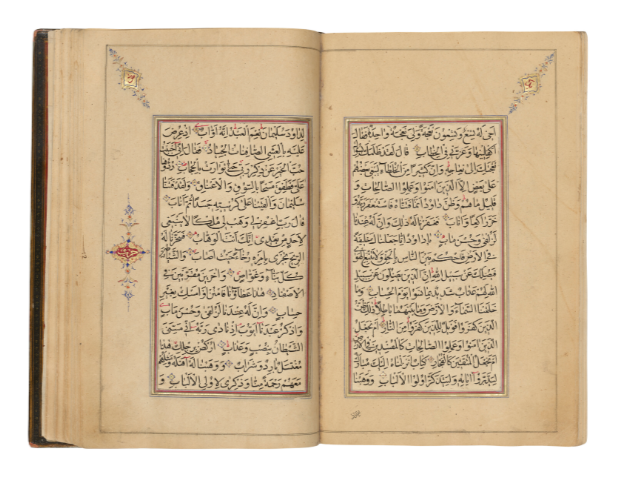 اخى له تسع وتسعون نعجة ولى نعجة واحدة فقال
اكفلنيها وعزنى فى الخطاب قال لقد ظلمك بسؤال
نعجتك الى نعاجه وان كثيرا من الخلطاء ليبغى بعضهم
على بعض الا الذين امنوا وعملوا الصالحات و
قليل ما هم وظن داود انما فتناه فاستغفر ربه و
خر راكعا واناب فغفرنا له ذلك وان له عندنا
لزلفى وحسن ماب يا داود انا جعلناك خليفة
فى الارض فاحكم بين الناس بالحق ولا تتبع الهوى
فيضلك عن سبيل الله ان الذين يضلون عن سبيل
الله لهم عذاب شديد بما نسوا يوم الحساب وما
خلقنا السماء والارض وما بينهما باطلا ذلك ظن
الذين كفروا فويل للذين كفروا من النار ام نجعل
الذين امنوا وعملوا الصالحات كالمفسدين فى الارض
ام نجعل المتقين كالفجار كتاب انزلناه اليك مبارك
ليدبروا اياته وليتذكر اولوا الالباب ووهبنا
لداود سليمان نعم العبد انه اواب اذ عرض
عليه بالعشى الصافنات الجياد فقال انى احببت
حب الخير عن ذكر ربى حتى توارت بالحجاب ردوها
على فطفق مسحا بالسوق والاعناق ولقد فتنا
سليمان والقينا على كرسيه جسدا ثم اناب
قال رب اغفر لى وهب لى ملكا لا ينبغى
لاحد من بعدى انك انت الوهاب فسخرنا له
الريح تجرى بامره رخاء حيث اصاب والشياطين
كل بناء وغواص واخرين مقرنين فى
الاصفاد هذا عطاؤنا فامنن او امسك بغير
حساب وان له عندنا لزلفى وحسن ماب
واذكر عبدنا ايوب اذ نادى ربه انى مسنى
الشيطان بنصب وعذاب اركض برجلك هذا
مغتسل بارد وشراب ووهبنا له اهله ومثلهم
معهم رحمة منا وذكرى لاولى الالباب و